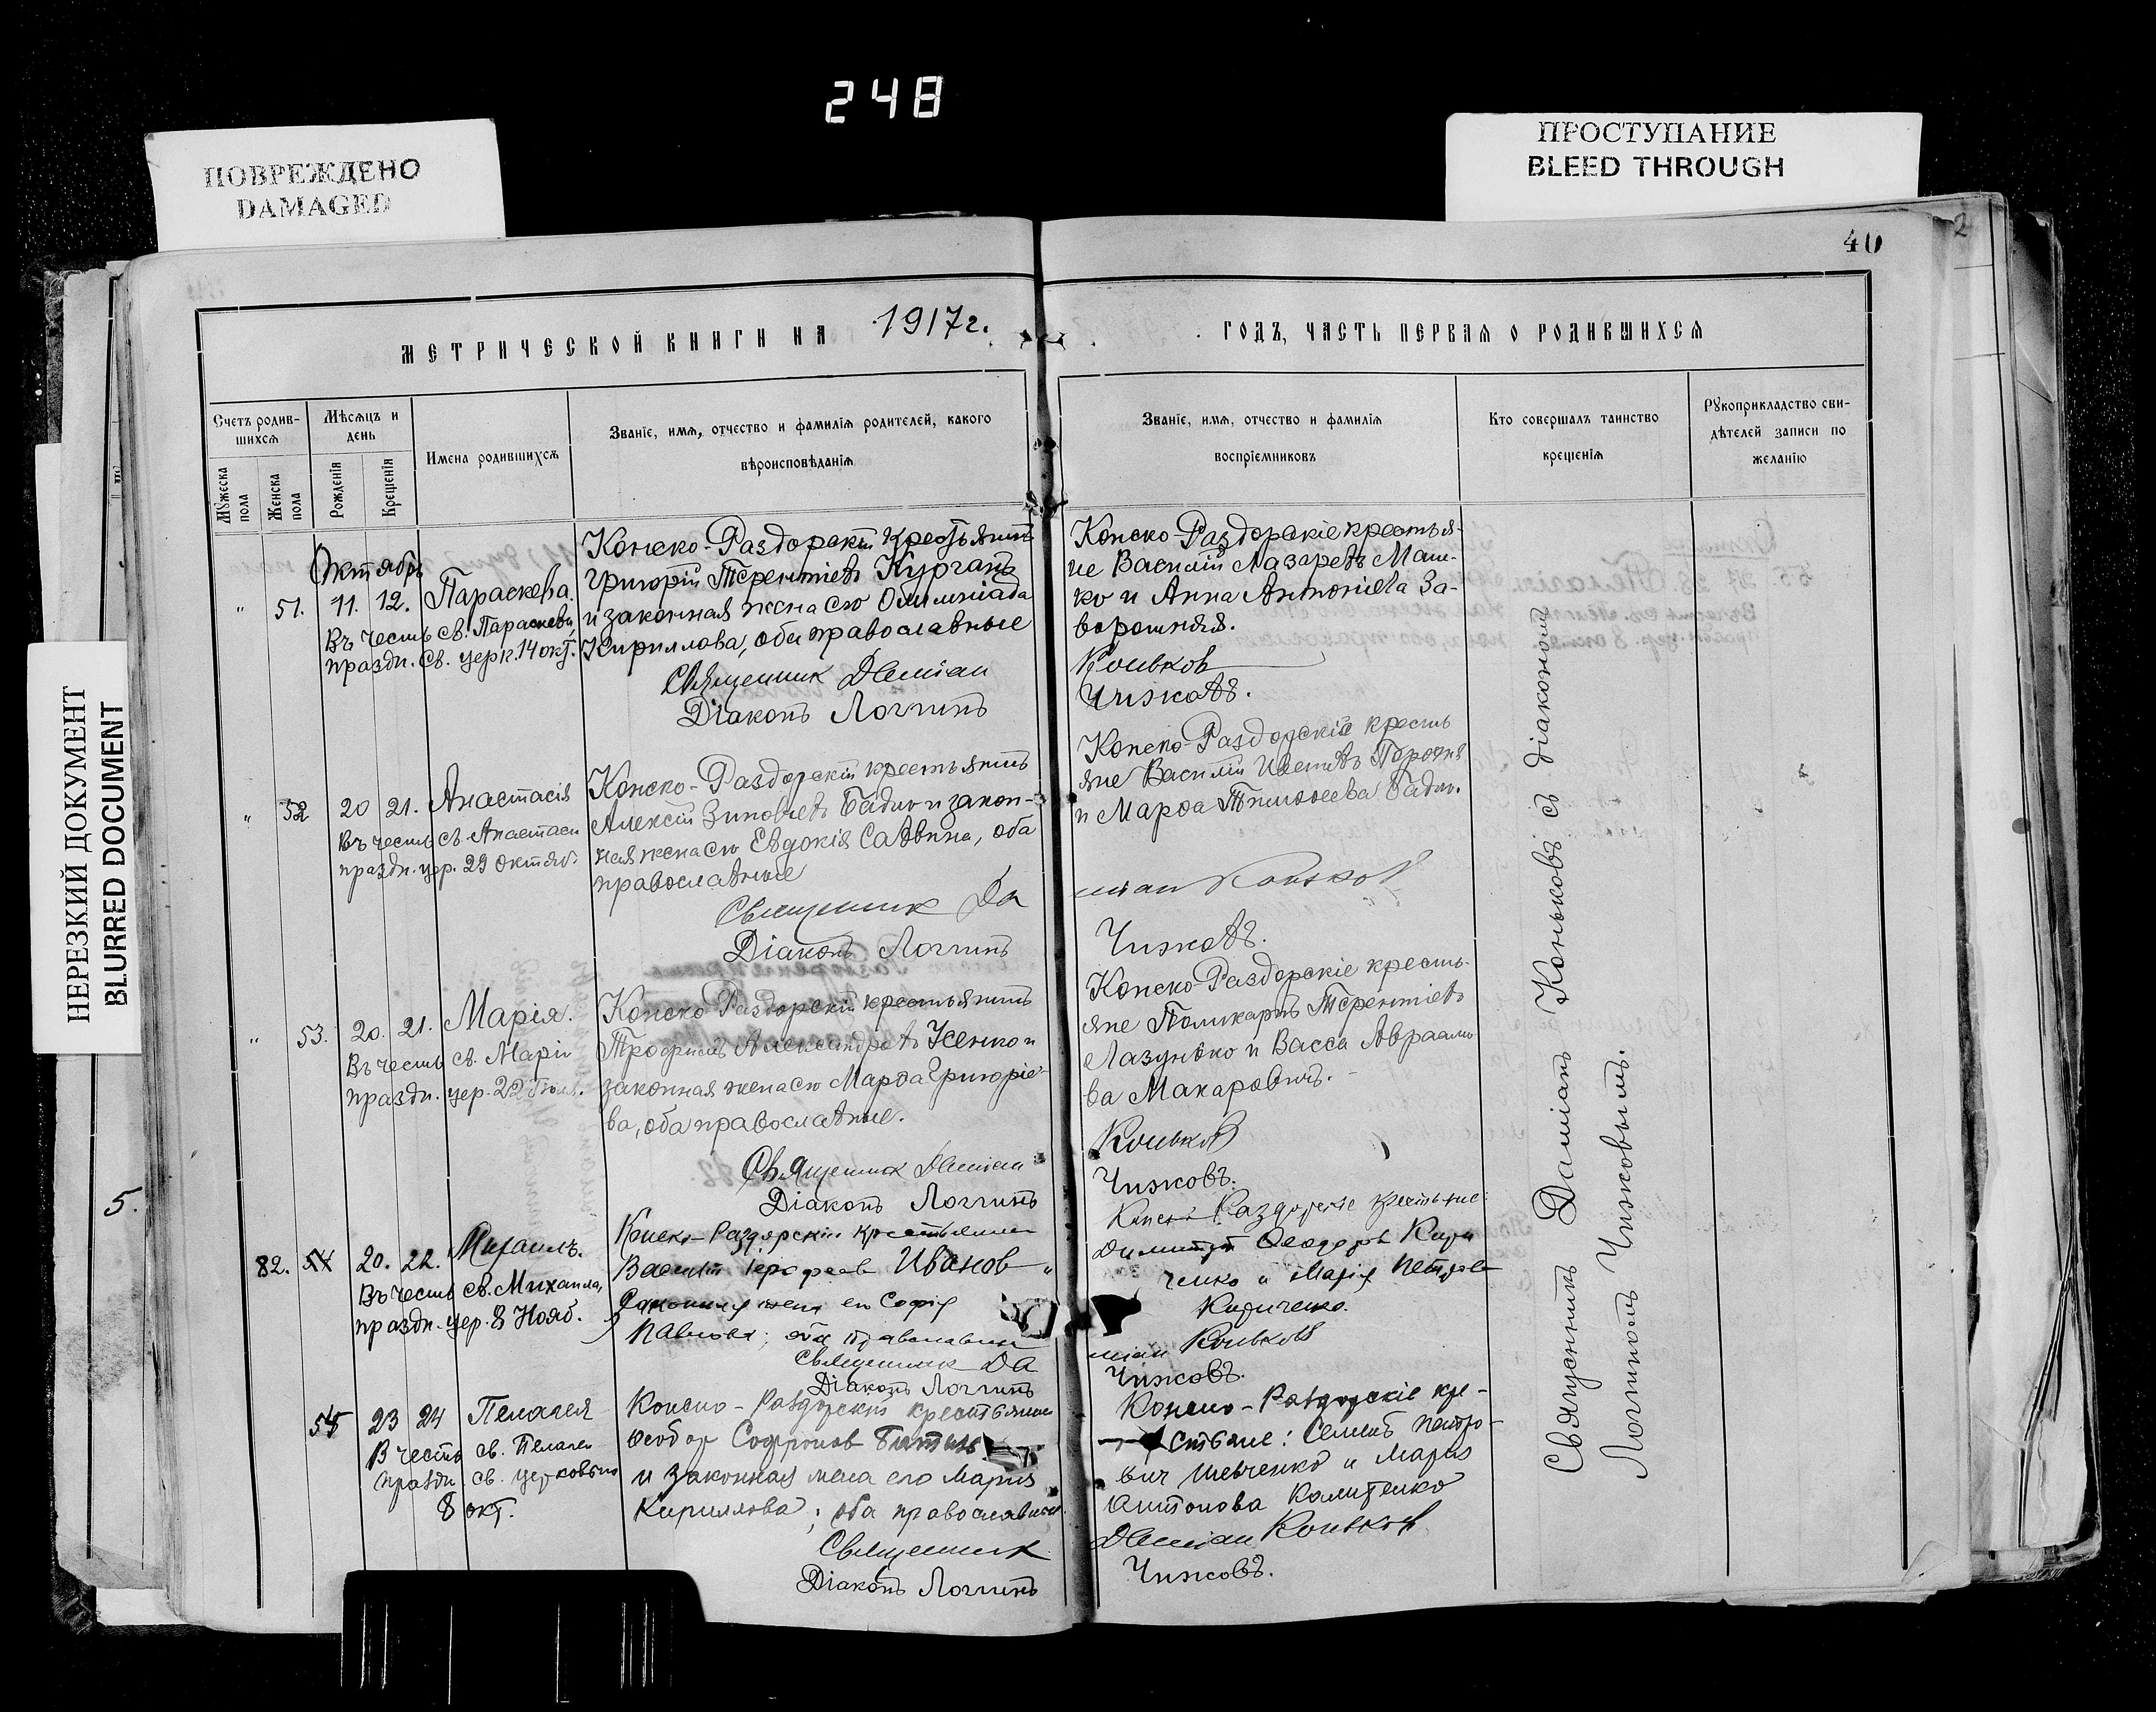 248
ПОВРЕЖДЕНО
DAMAGED
ПРОСТУПАНИЕ
BLEED THROUGH
НЕРЕЗКИЙ ДОКУМЕНТ
BLURRED DOCUMENT
5.
40
2
МЕТРИЧЕСКОЙ КНИГИ НА 1917 г.
ГОДЪ, ЧАСТЬ ПЕРВАЯ О РОДИВШИХСЯ
Счетъ родив-
шихся
Мужеска пола
Женска пола
Мѣсяцъ и
день
Рожденія
Крещенія
Имена родившихся
Званіе, имя, отчество и фамилія родителей, какого
вѣроисповѣданія
Званіе, имя, отчество и фамилія
воспріемниковъ
Кто совершалъ таинство
крещенія
Рукоприкладство сви-
дѣтелей записи по
желанію
Октябрь
" 51. 11. 12. Параскева.
Въ честь св. Параскевы
праздн. св. церк. 14 окт.
Конско-Раздорскій крестьянинъ
Григорій Терентіевъ Курганъ
и законная жена его Олимпіада
Кириллова, оба православные
Священник Даміан
Діаконъ Логгинъ
Конско-Раздорскіе крестья-
не Василій Лазаревъ Маш-
ко и Анна Антоніева За-
воротняя.
Коньков
Чижовъ.
" 52 20 21. Анастасія
Въ честь св. Анастасіи
праздн. цер. 29 октяб.
Конско-Раздорскій крестьянинъ
Алексій Зиновіевъ Бадло и закон-
ная жена его Евдокія Саввина, оба
православные
Священник Да
Діаконъ Логгинъ
Конско-Раздорскіе кресть
яне Василій
и Марѳа Тимоѳеева Бадло.
міан Коньков
Чижовъ.
" 53. 20. 21. Марія.
Въ честь св. Маріи
праздн. цер. 22 Іюля.
Конско-Раздорскій крестьянинъ
Трофимъ Александровъ Усенко и
законная жена его Марѳа Григоріе-
ва, оба православные.
Священник Даміан
Діаконъ Логгинъ
Конско-Раздорскіе кресть-
яне Поликарпъ Терентіевъ
Лазунько и Васса Авраамо
ва Макаровичъ.
Коньков
Чижовъ.
82. 54 20. 22. Михаилъ.
Въ честь св. Михаила,
праздн. цер. 8 Нояб.
Конско-Раздорскій крестьянин
Василій Іерофеев Иванов "
Законная жена его Софія
Павлова; оба православные
Священник Да
Діаконъ Логгинъ
Конско-Раздорскіе крестьяне:
Димитрій Ѳеодоров Кири
ченко и Марія Петрова
Кириченко.
міан Коньков
Чижовъ.
55 23 24 Пелагея
В честь св. Пелагеи
праздн. св. церковью
8 окт.
Конско-Раздорскій крестьянин
Ѳеодор Софронов
и законная жена его Мария
Кириллова; оба православные.
Священник
Діаконъ Логгинъ
Конско-Раздорскіе кре-
стьяне: Семенъ Петро-
вич Шевченко и Мария
Антонова
Даміан Коньков
Чижовъ.
Священникъ Даміанъ Коньковъ съ діакономъ
Логгиномъ Чижовымъ.